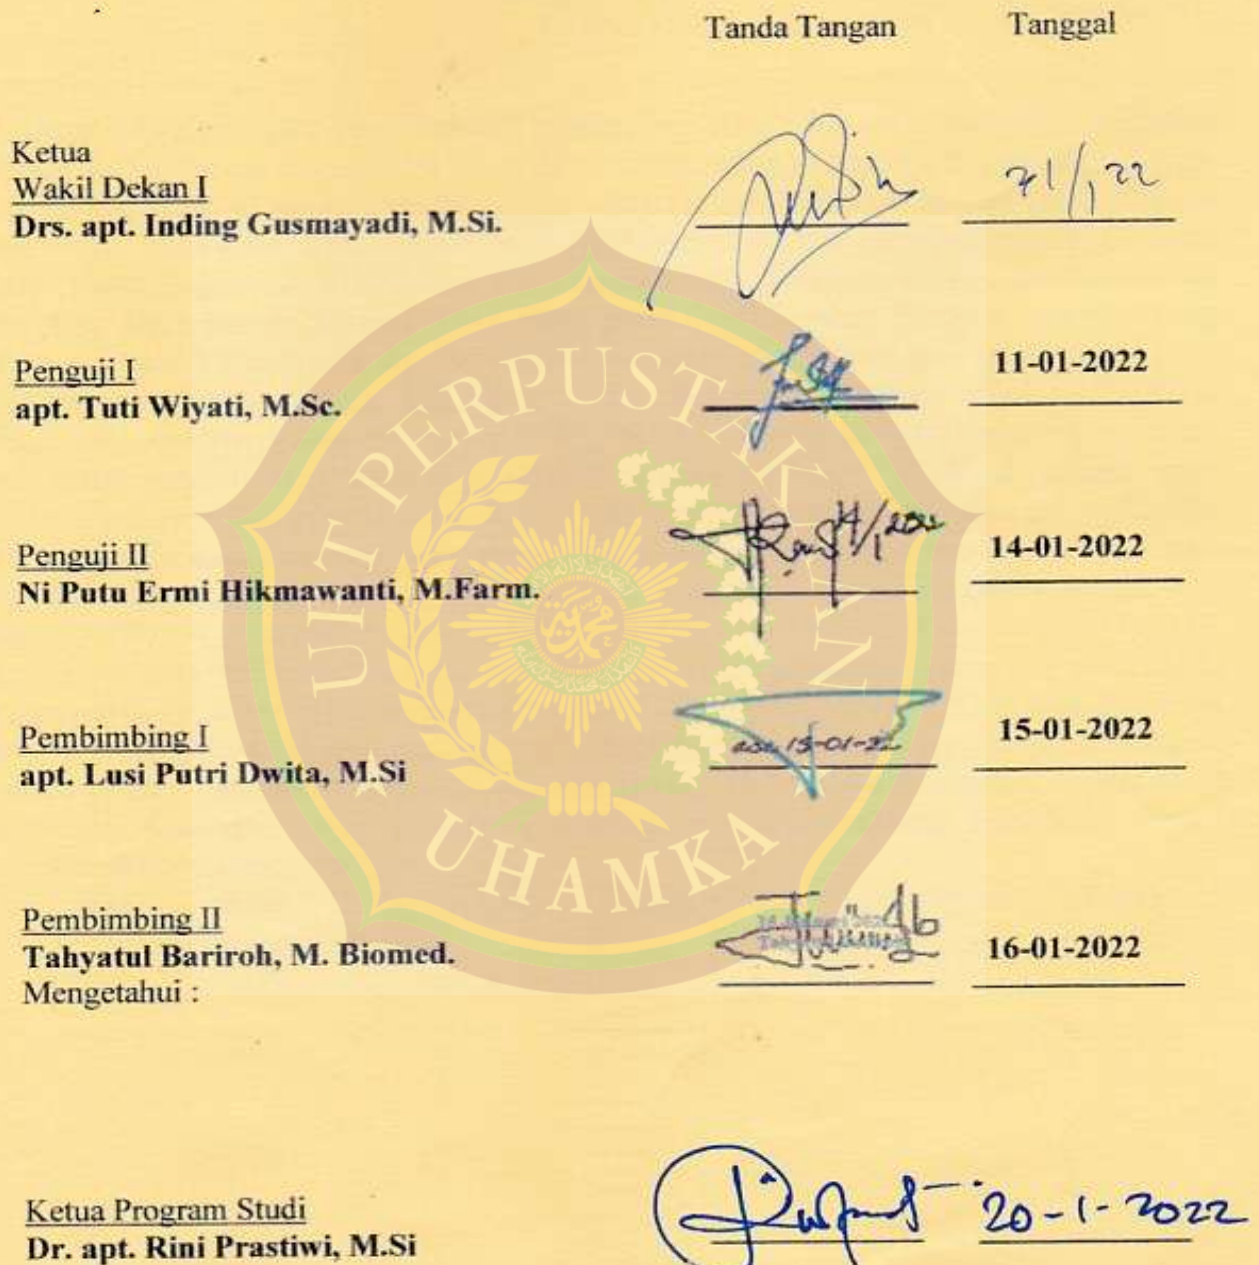 Tanda Tangan Tanggal
Ketua
Wakil Dekan I
Drs. apt. Inding Gusmayadi, M.Si.
Penguji I
apt. Tuti Wiyati, M.Sc.
11-01-2022
Penguji II
Ni Putu Ermi Hikmawanti, M.Farm.
14-01-2022
Pembimbing I
apt. Lusi Putri Dwita, M.Si
15-01-22
15-01-2022
Pembimbing II
Tahyatul Bariroh, M. Biomed.
16-01-2022
Mengetahui :
Ketua Program Studi
Dr. apt. Rini Prastiwi, M.Si
20-1-2022
UPT PERPUSTAKAAN
UHAMKA